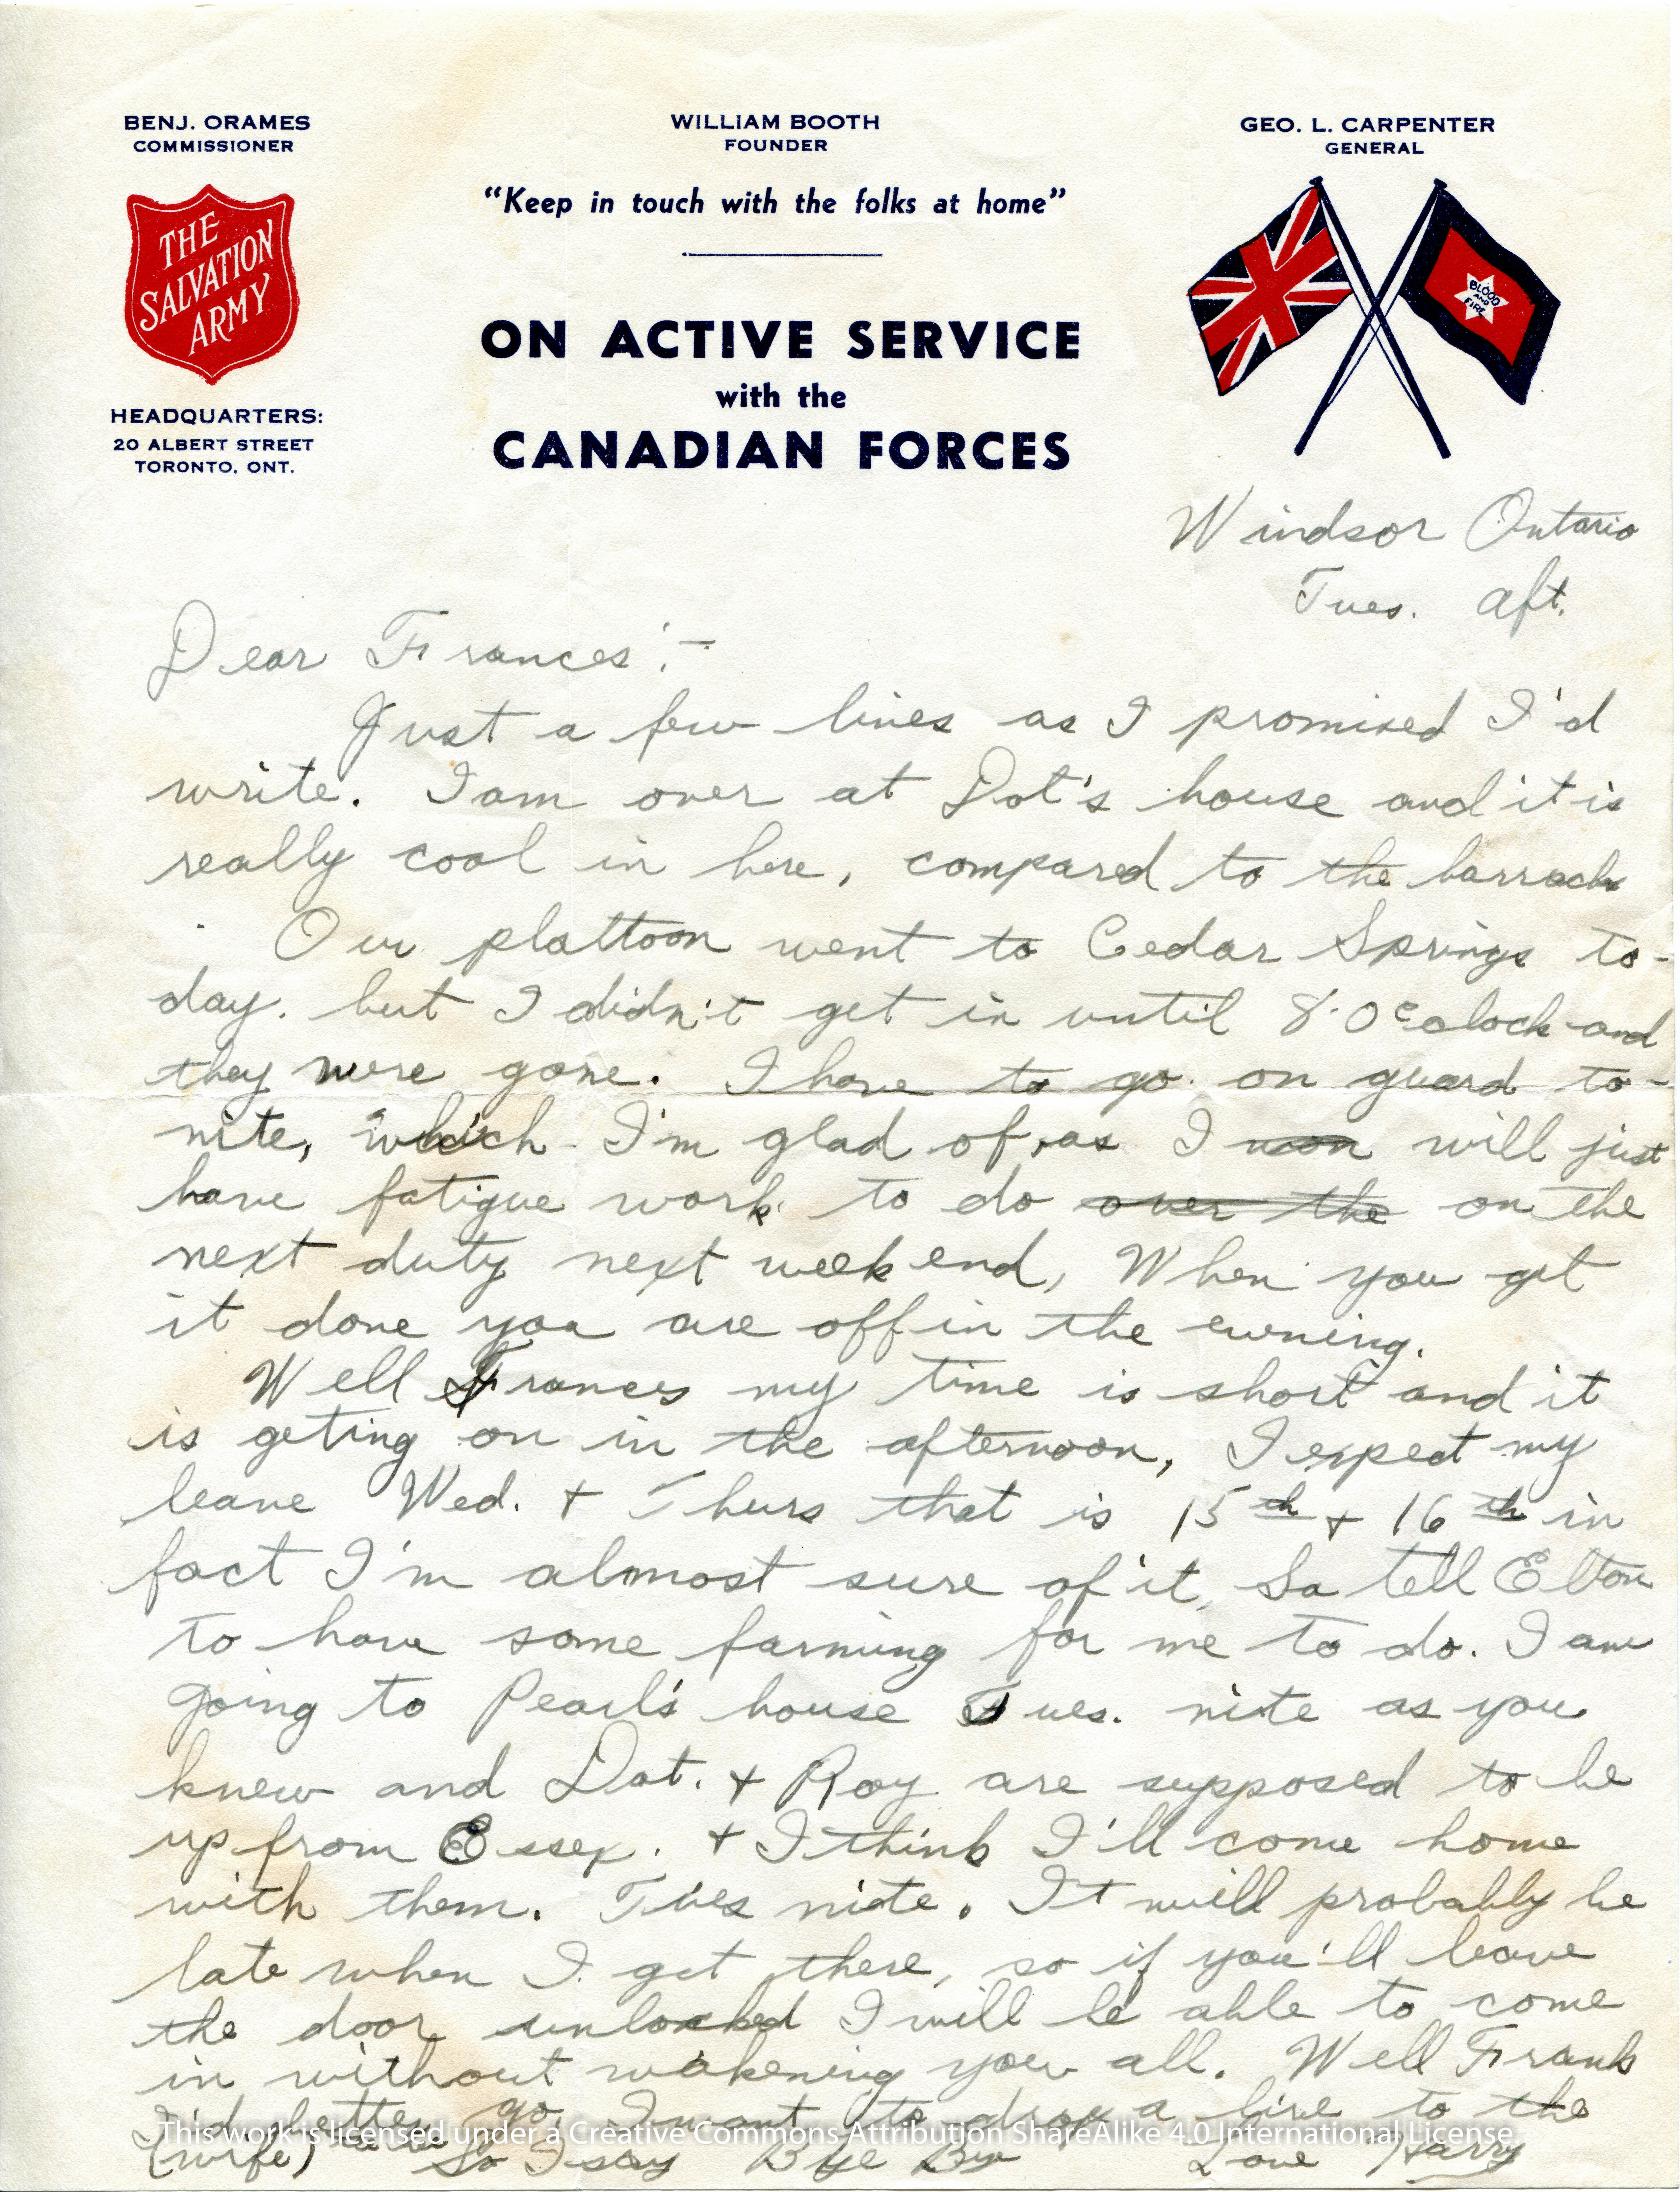 BENJ. ORAMES
COMMISSIONER
WILLIAM BOOTH
FOUNDER
GEO. L. CARPENTER
GENERAL
"Keep in touch with the folks at home"
THE
SALVATION
ARMY
BLOOD
AND
FIRE
HEADQUARTERS:
20 ALBERT STREET
TORONTO, ONT.
ON ACTIVE SERVICE
with the
CANADIAN FORCES
Windsor Ontario
Tues. Aft.
Dear Frances:-
Just a few lines as I promised I'd
write. I am over at Dot's house and it is
really cool in here, compared to the barrack
Our plattoon went to Cedar Springs to-
day. but I didn't get in until 8.0c olock and
they were gone. I have to go on guard to-
nite, which I'm glad of, as I will just
have fatigue work to do over the on the
next duty next week end, When you get
it done you are off in the evening.
Well Frances my time is short and it
is geting on in the afternoon, I expect my
leave Wed. + Thurs that is 15th + 16th in
fact I'm almost sure of it, So tell Elton
to have some farming for me to do. I am
going to Pearl's house Tues. nite as you
knew and Dot. + Roy are supposed to be
up from Essex. + I think I'll come home
with them. Tues nite. It will probably be
late when I get there, so if you'll leave
the door unlocked I will be able to come
in without wakening you all. Well Frank
I'd better go. I want to drop a line to the
(wife) So I say Bye Bye Love Harry
This work is licensed under a Creative Commons Attribution ShareAlike 4.0 International License.